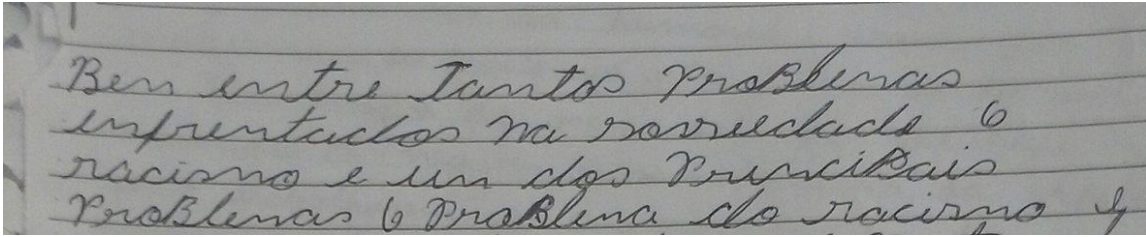 Ben entre Tantos ProBlemas
enfrentados na sociedade o
racismo e um dos PrinciPais
ProBlemas o ProBlema do racismo e